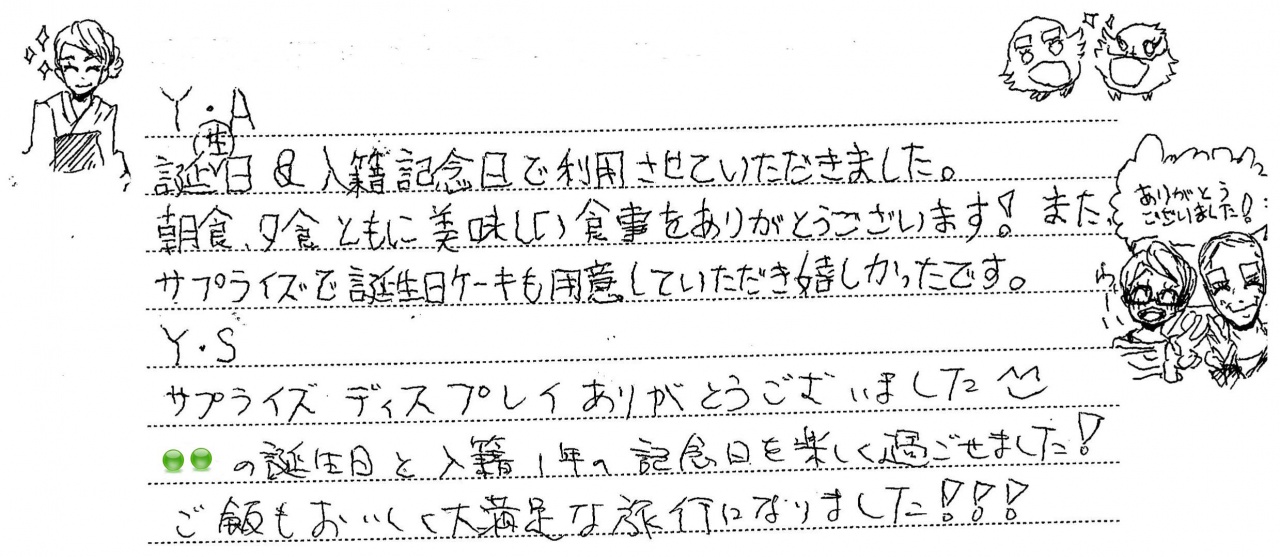 Y・A
誕生日&入籍記念日で利用させていただきました。
朝食、夕食ともに美味しい食事をありがとうございます!また、
サプライズで誕生日ケーキも用意していただき嬉しかったです。
Y・S
サプライズディスプレイありがとうございました
の誕生日と入籍1年の記念日を楽しく過ごせました!
ご飯もおいしく大満足な旅行になりました!!!
ありがとう
ございました!